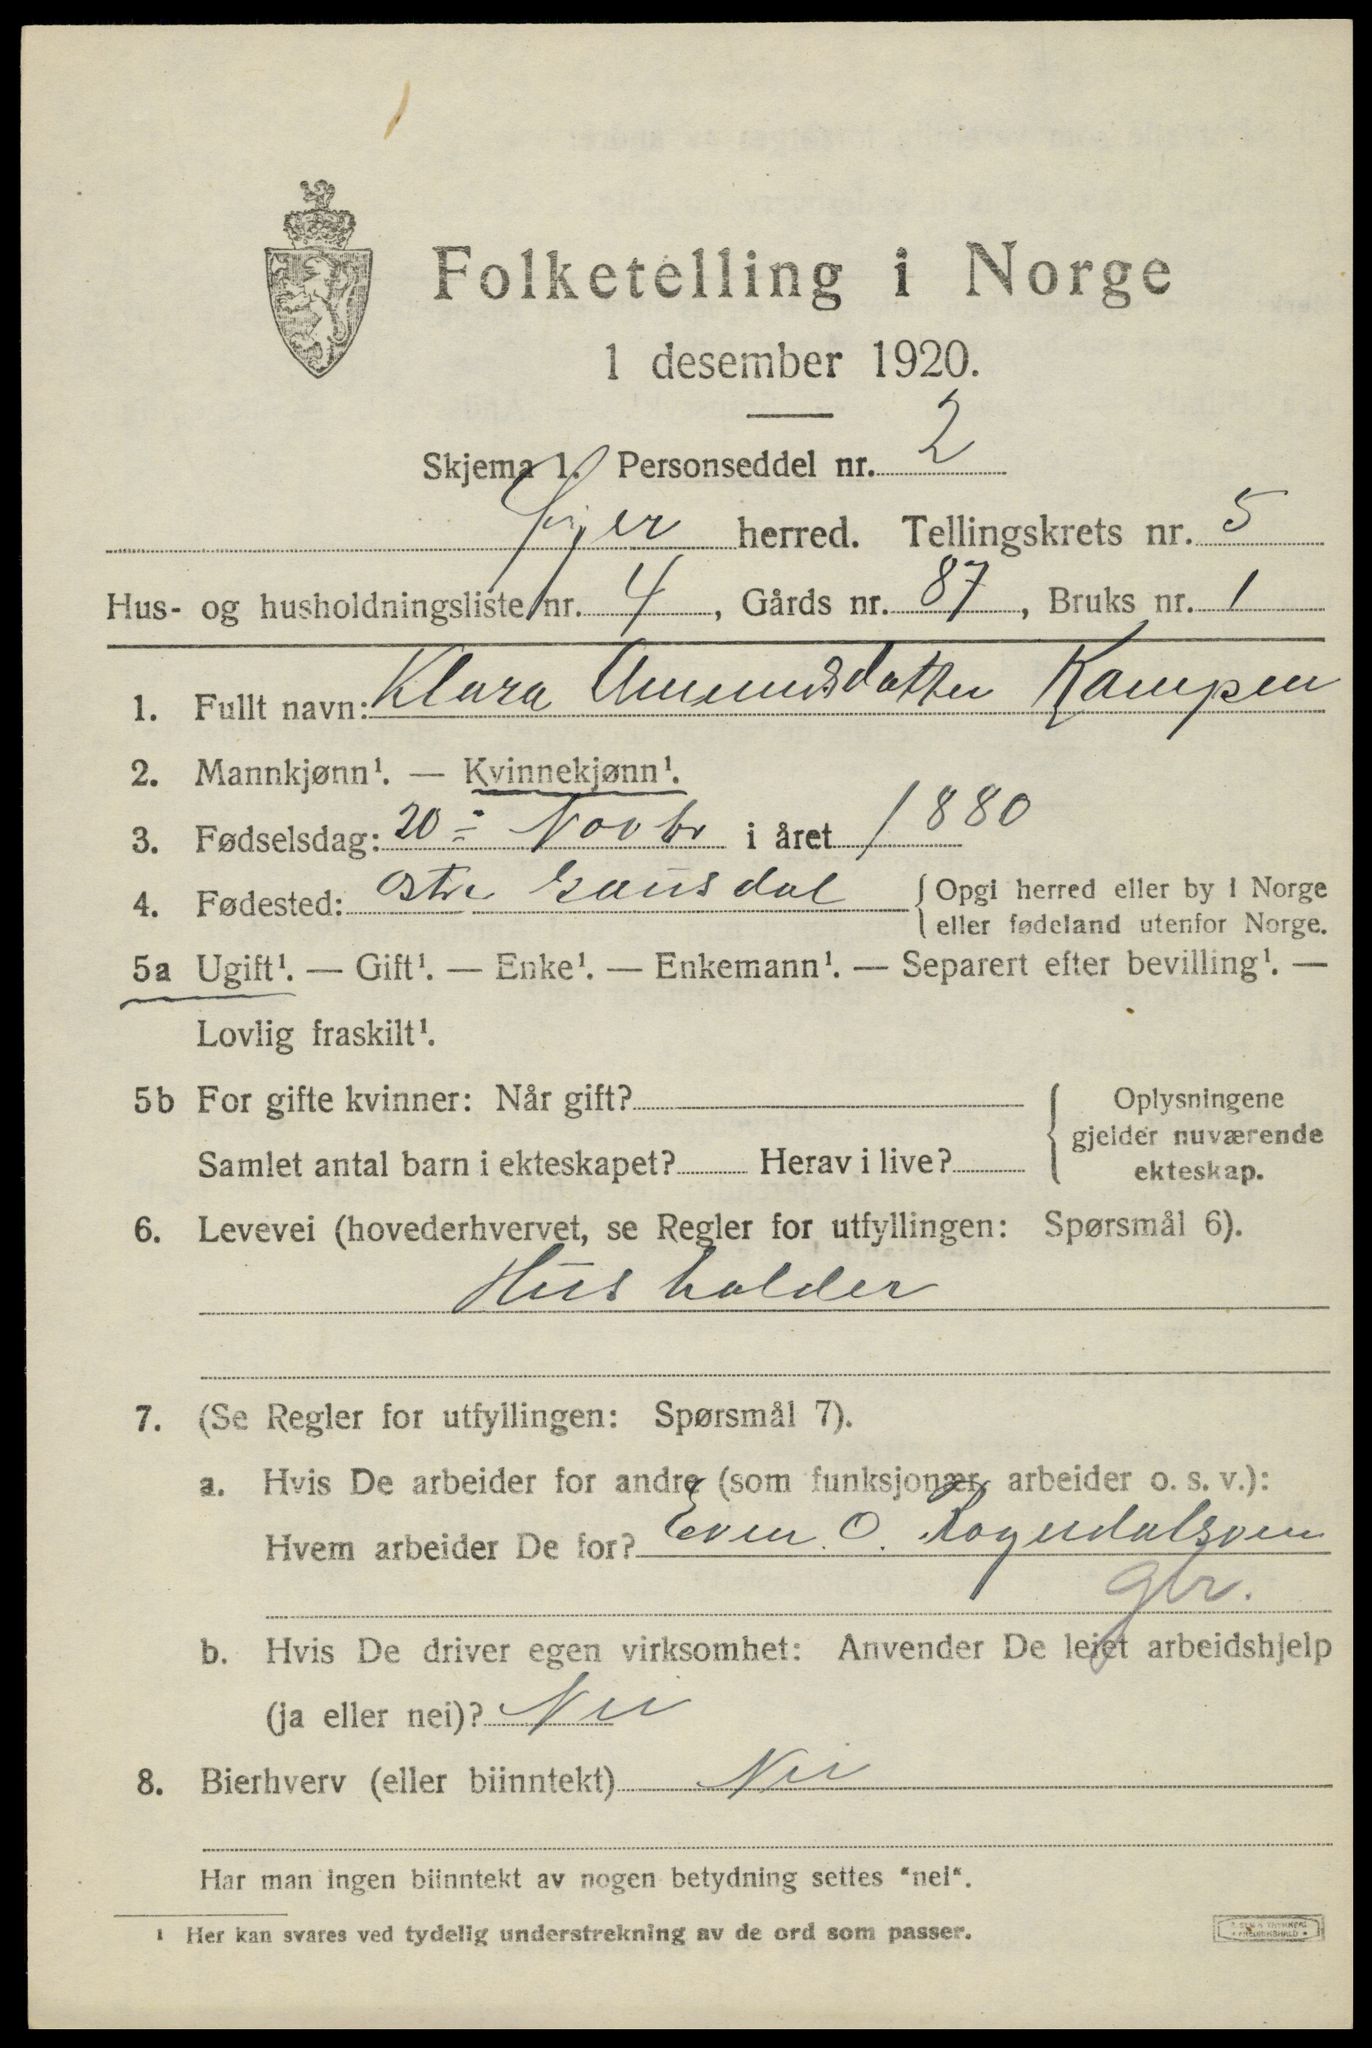 Folketelling i Norge
1 desember 1920.
Skjema 1. Personseddel nr. 2
Øyer herred. Tellingskrets nr. 5
Hus- og husholdningsliste nr. 4, Gårds nr. 87, Bruks nr. 1
1. Fullt navn: Klara Amundsdatter Kampen
2. Mannkjønn¹. — Kvinnekjønn¹.
3. Fødselsdag: 20 Novbr i året 1880
4. Fødested: Østre Gausdal {Opgi herred eller by i Norge
eller fødeland utenfor Norge.
5a Ugift¹. — Gift¹. — Enke¹. — Enkemann¹. — Separert efter bevilling¹. —
Lovlig fraskilt¹.
5b For gifte kvinner: Når gift? { Oplysningene
gjelder nuværende
Samlet antal barn i ekteskapet? Herav i live?
ekteskap.
6. Levevei (hovederhvervet, se Regler for utfyllingen: Spørsmål 6).
Husholder
7. (Se Regler for utfyllingen: Spørsmål 7).
a. Hvis De arbeider for andre (som funksjonær, arbeider o. s. v.):
Hvem arbeider De for? Even O.
b. Hvis De driver egen virksomhet: Anvender De leiet arbeidshjelp
(ja eller nei)? Nei
8. Bierhverv (eller biinntekt) Nei
Har man ingen biinntekt av nogen betydning settes "nei".
¹ Her kan svares ved tydelig understrekning av de ord som passer.